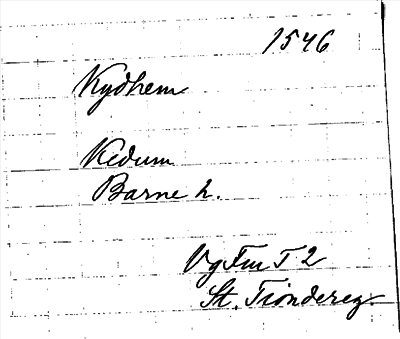 1546
Kydhem
Kedum
Barne h.
Vg Fm T 2
St. Tiondereg.